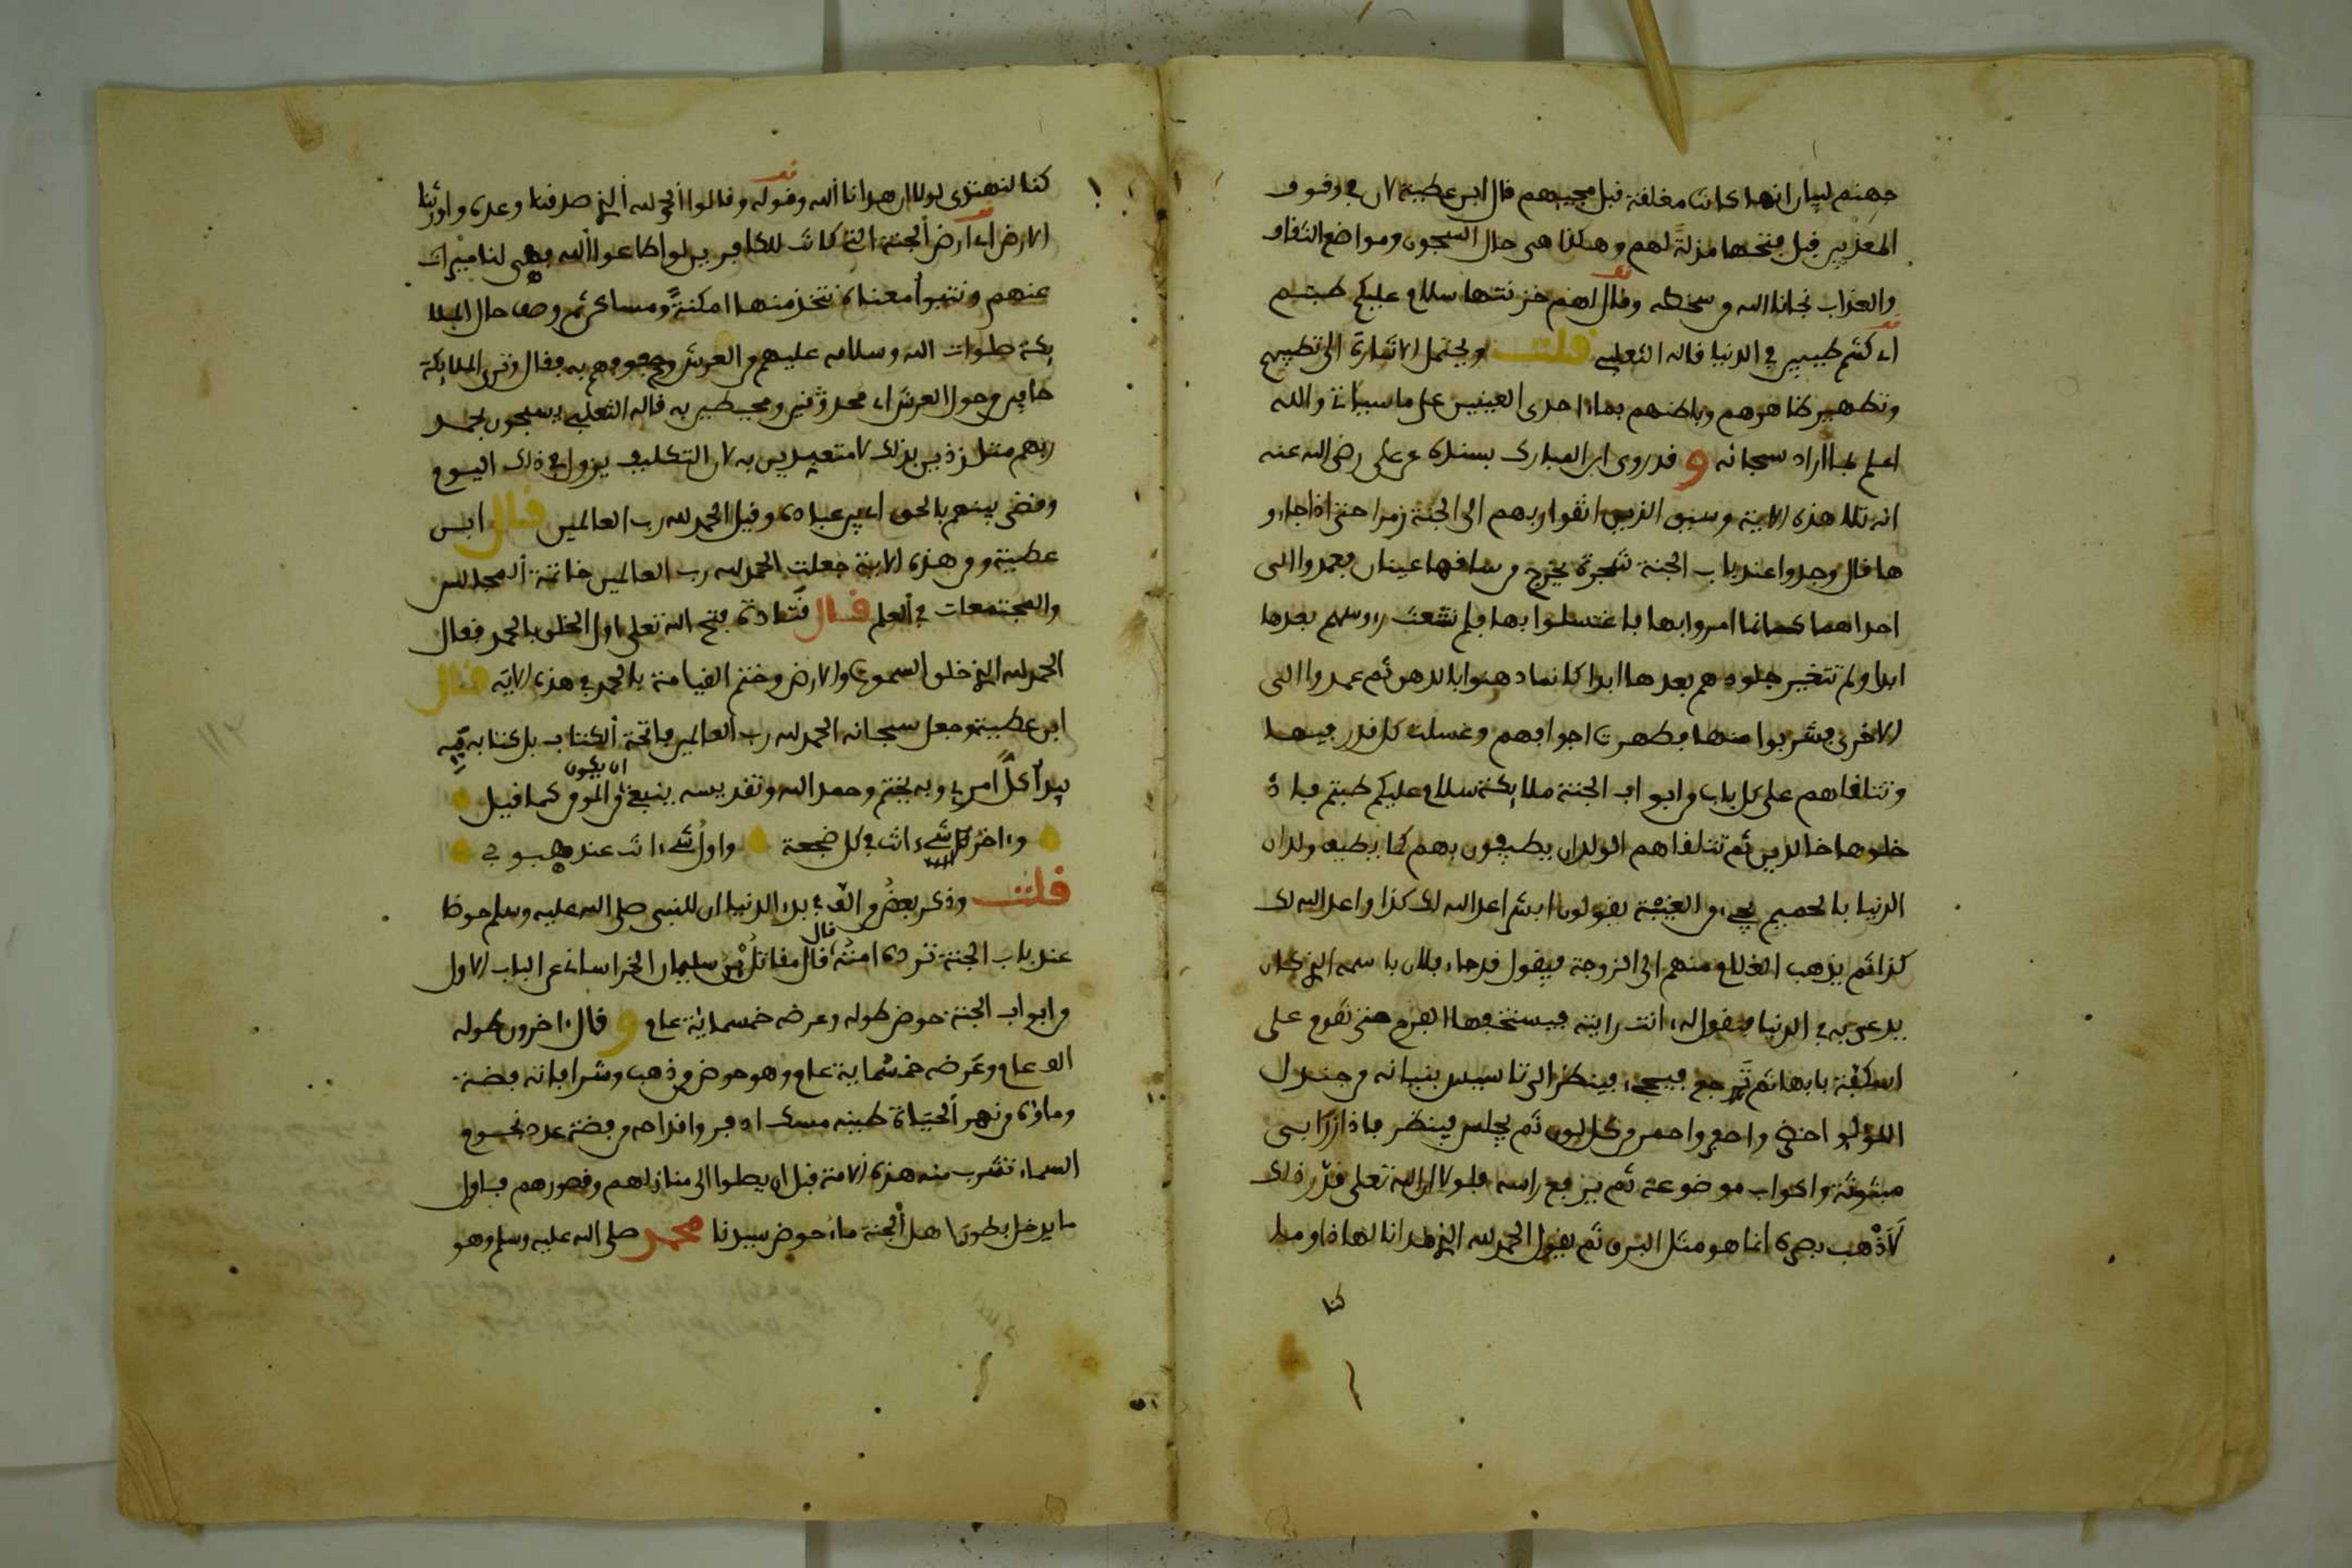 جهنم لبيان انها كانت مغلقة قبل مجيهم قال ابن عطية لان في وقوف
المعذبين قبل فتحها مذلة لهم وهكذا هي حال السجون ومواضع الثقاف
والعذاب نجانا الله من سخطه وقال لهم خزنتها سلام عليكم طبتم
اي كنتم طيبين في الدنيا قاله الثعلبي قلت ويحتمل الاشارة الى تطييبهم
وتطهير ظاهرهم وباطنهم بماء احدى العينين على ما سياتي والله
اعلم بما اراد سبحانه وقد روى ابن المبارك بسنده عن علي رضي الله عنه
انه تلا هذه الاية وسيق الذين اتقوا ربهم الى الجنة زمرا حتى اذا جاءو
ها قال وجدوا عند باب الجنة شجرة يخرج من ساقها عينان فعمدوا الى
احداهما كانما امروا بها فاغتسلوا بها فلم تشعث رءوسهم بعدها
ابدا ولم تتغير جلودهم بعدها ابدا كانما دهنوا بالدهن ثم عمدوا الى
الاخرى فشربوا منها فطهرت اجوافهم وغسلت كل قذر فيها
وتتلقاهم على كل باب من ابواب الجنة ملايكة سلام عليكم طبتم فاد
خلوها خالدين ثم تتلقاهم الولدان يطيفون بهم كما يطيف ولدان
الدنيا بالحميم يجيء من الغيبة يقولون ابشر اعد الله لك كذا واعد الله لك
كذا ثم يذهب الغلام منهم الى الزوجة فيقول قد جاء فلان باسمه الذي كان
يدعى به في الدنيا فتقول له انت رايته فيستخفها الفرح حتى تقوم على
اسكفة بابها ثم ترجع فيجيء فينظر الى تاسيس بنيانه من جندل
اللؤلؤ اخضر واصفر واحمر من كل لون ثم يجلس فينظر فاذا زرابي
مبثوثة واكواب موضوعة ثم يرفع راسه فلولا ان الله تعلى قدر ذلك
لاذهب بصره انما هو مثل البرق ثم يقول الحمد لله الذي هدانا لهاذا وما
كنا
كنا لنهتدي لولا ان هدانا الله وقوله وقالوا الحمد لله الذي صدقنا وعده واورثنا
الارض اي ارض الجنة التي كانت للكافرين لو اطاعوا الله فهي لنا ميراث
عنهم ونتبوأ معناه نتخذ منها امكنة ومساكن ثم وصف حال الملا
يكة صلوات الله وسلامه عليهم من العرش وحفوفهم به فقال وترى الملايكة
حافين من حول العرش اي محدقين ومحيطين به قاله الثعلبي يسبحون بحمد
ربهم متلذذين بذلك لا متعبدين به لان التكليف يزول في ذلك اليوم
وقضي بينهم بالحق اي بين عباده وقيل الحمد لله رب العالمين قال ابن
عطية ومن هذه الاية جعلت الحمد لله رب العالمين خاتمة المجالس
والمجتمعات في العلم قال قتادة فتح الله تعلى اول الخلق بالحمد فقال
الحمد لله الذي خلق السموت والارض وختم القيامة بالحمد في هذه الاية قال
ابن عطية وجعل سبحانه الحمد لله رب العالمين فاتحة الكتاب بل كتابه فبه
يبدأ كل امر وبه يختم وحمد الله وتقديسه ينبغي ان يكون من المومن كما قيل
واخر كل شيء انت في كل ضجعة واول شيء انت عند هبوبي
قلت وذكر بعض من الف في بدء الدنيا ان للنبي صلى الله عليه وسلم حوضا
عند باب الجنة ترده امته قال قال مقاتل بن سليمان الخراساني عن الباب الاول
من ابواب الجنة حوض طوله وعرضه خمسماية عام وقال اخرون طوله
الف عام وعرضه خمسماية عام وهو حوض من ذهب وشرافاته فضة
وماؤه من نهر الحياة طينه مسك اذفر واقداحه من فضة عدد نجوم
السماء تشرب منه هذه الامة قبل ان يصلوا الى منازلهم وقصورهم فاول
ما يدخل بطون اهل الجنة ماء حوض سيدنا محمد صلى الله عليه وسلم وهو